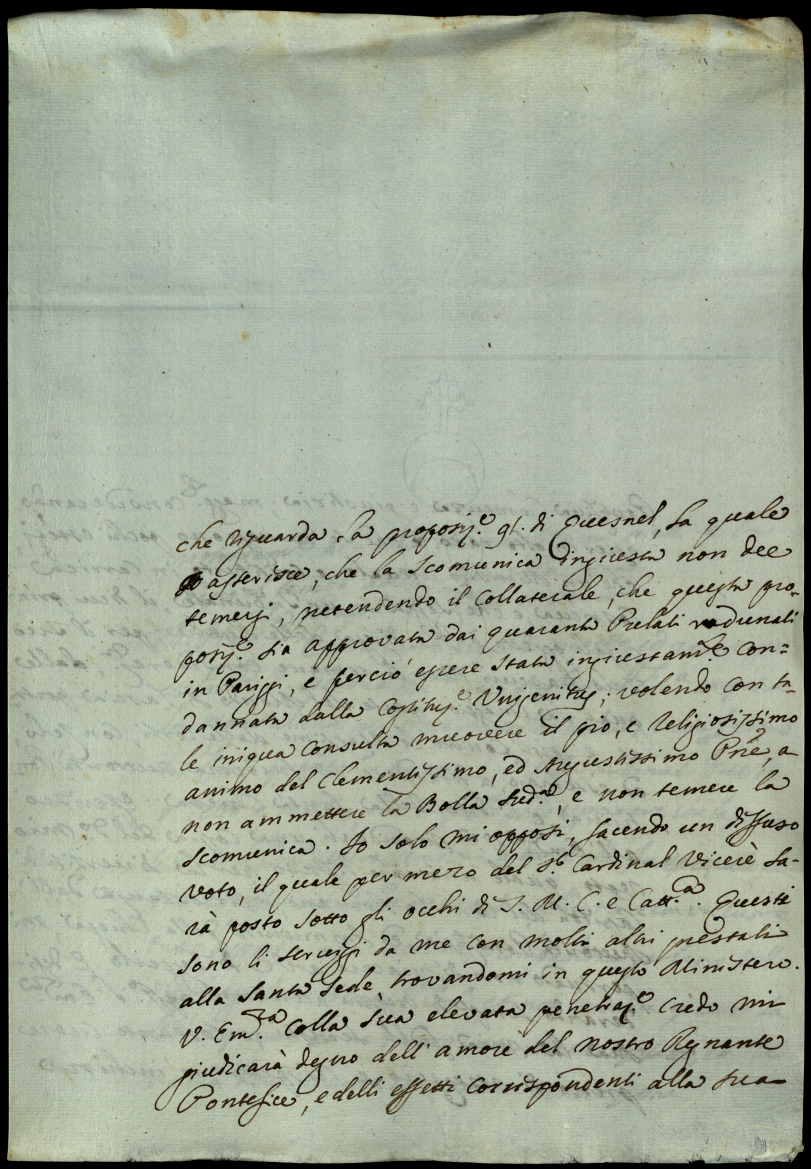 che riguarda la proposiz.e 91. di Quesnel, la quale
asserisce, che la scomunica ingiusta non dee
temersi, pretendendo il Collaterale, che questa pro-
posiz.e sia approvata dai quaranta Prelati radunati
in Pariggi, e perciò essere stata ingiustam.te con=
dannata dalla Costituz.e Unigenitus; volendo con ta-
le iniqua consulta muovere il pio, e Religiosissimo
animo del Clementissimo, ed Augustissimo Prñe, a
non ammettere la Bolla sud.a, e non temere la
scomunica. Io solo mi opposi, facendo un diffuso
voto, il quale per mezo del S.r Cardinal Vicerè sa-
rà posto sotto gli occhi di S. M. C. e Catt.ca. Questi
sono li serviggi da me con molti altri prestati
alla Santa Sede, trovandomi in questo Ministero.
V. Em.za colla sua elevata penetraz.e credo mi
giudicarà degno dell'amore del nostro Regnante
Pontefice, e delli effetti corrispondenti alla sua